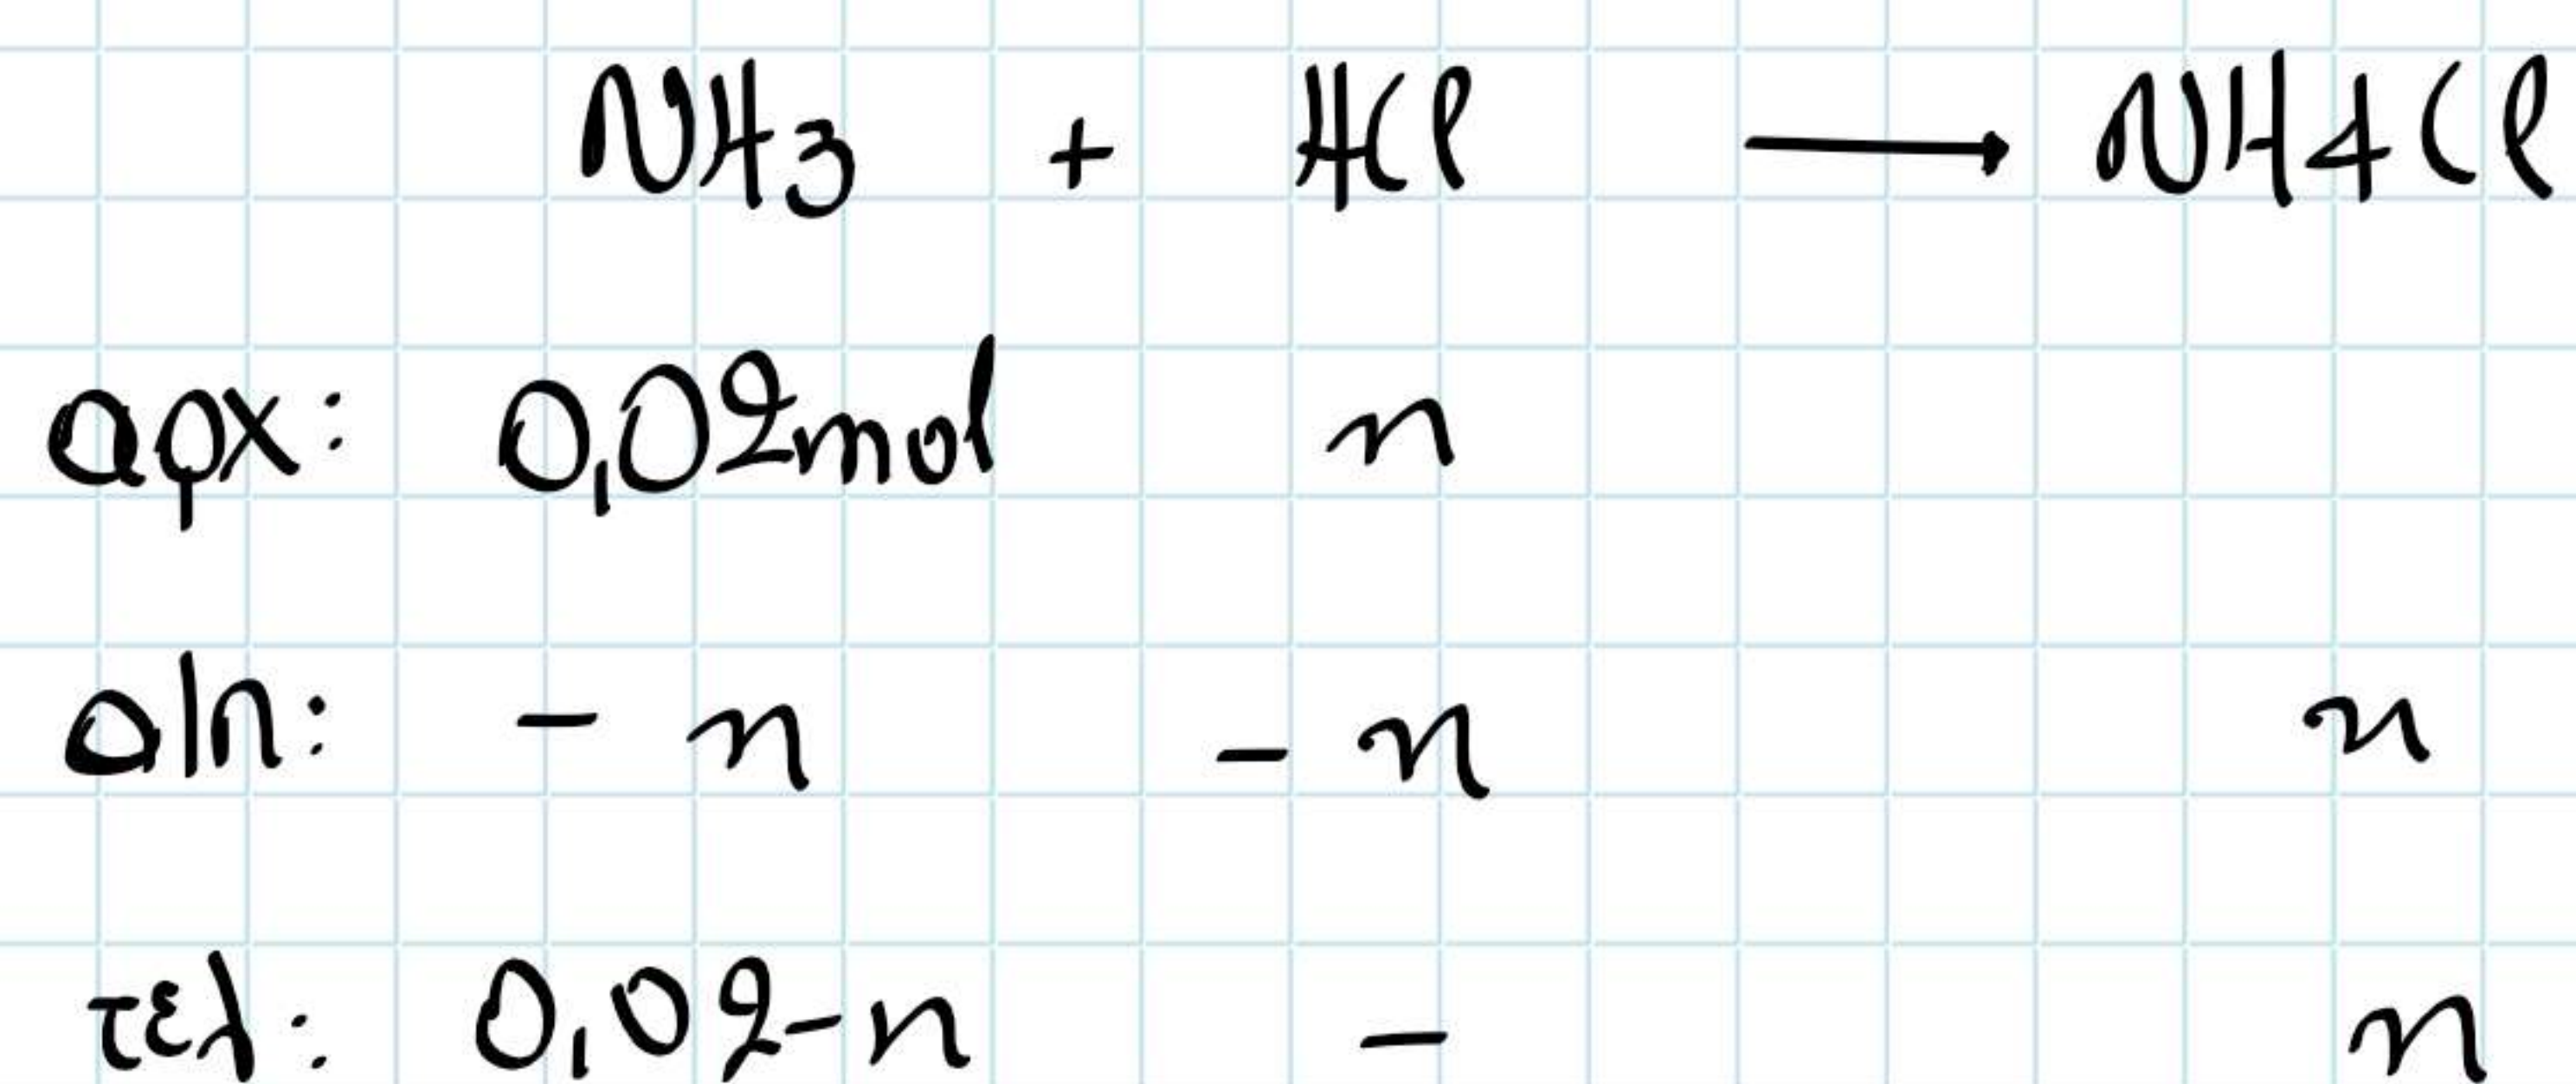 NH3 + HCl → NH4Cl
αρχ: 0,02mol n
αlπ: -n -n n
τελ: 0,02-n - n